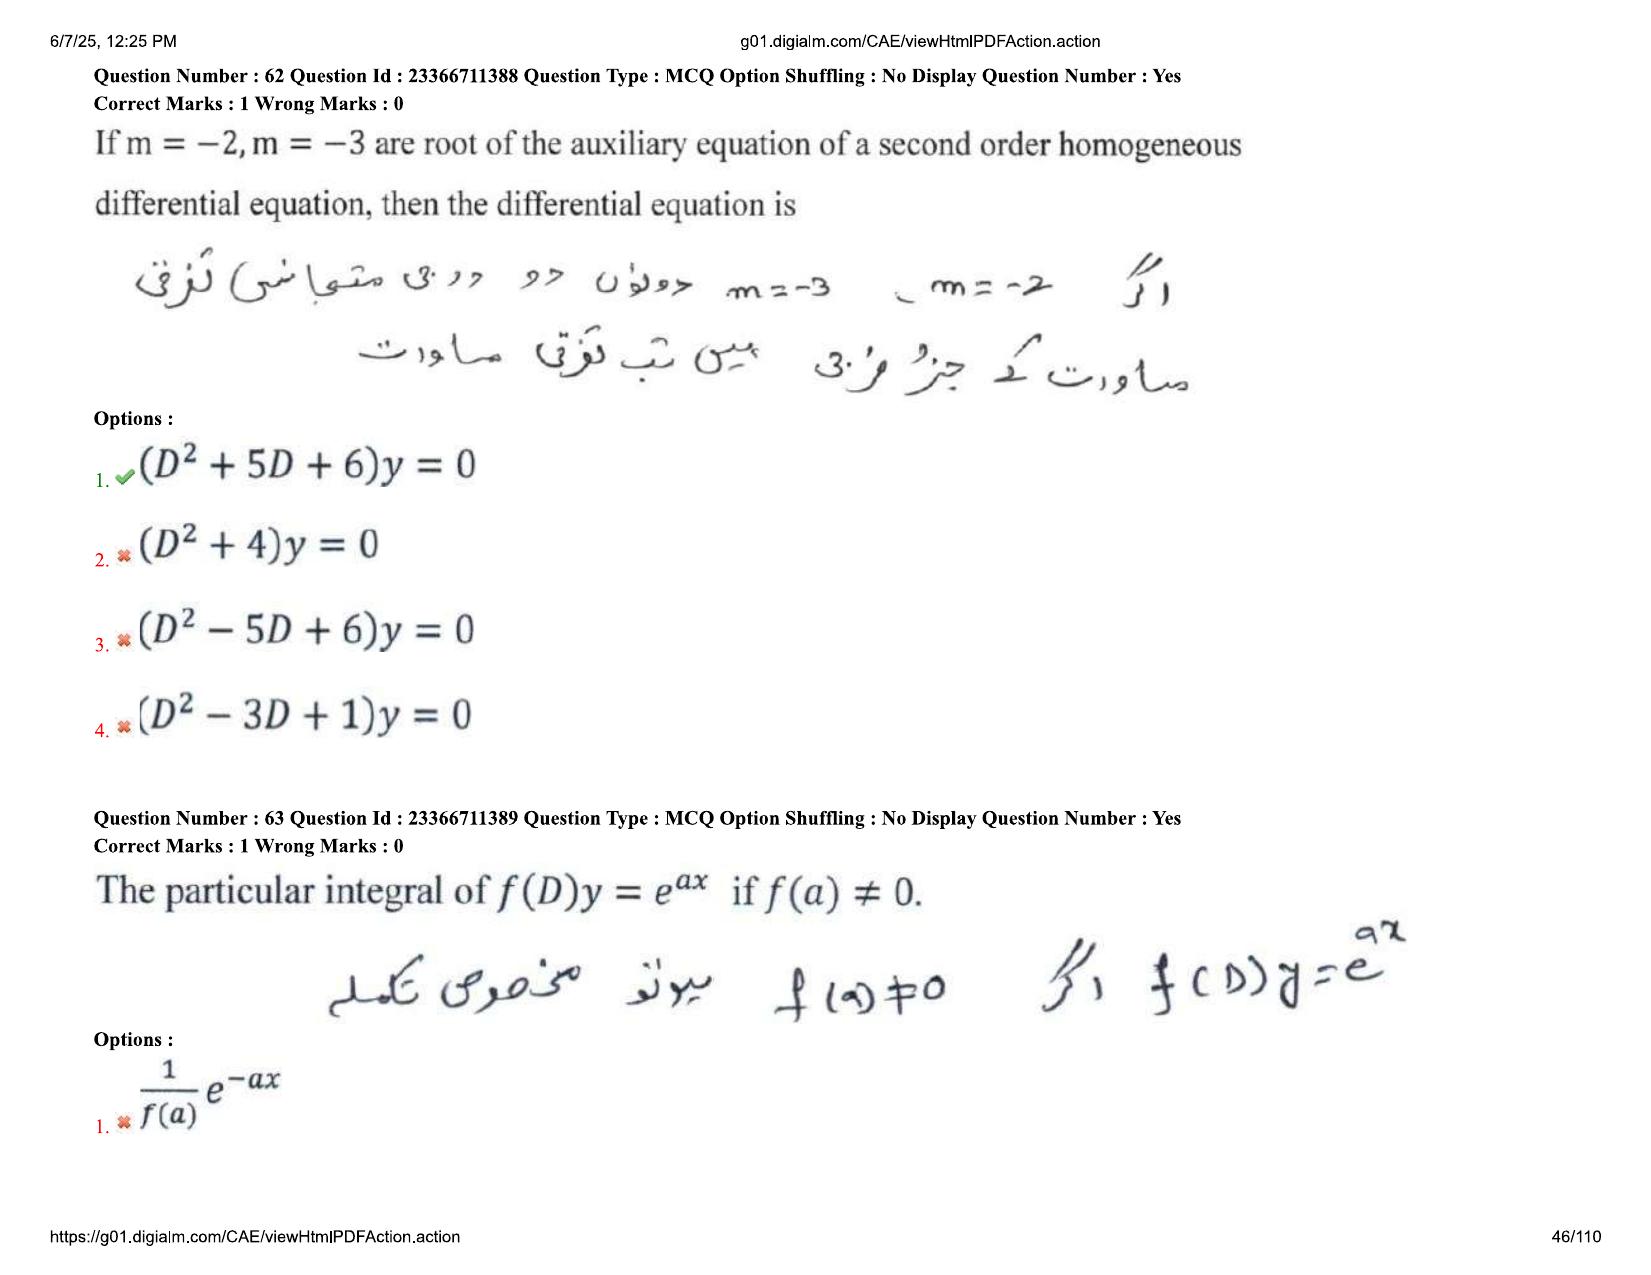 6/7/25, 12:25 PM
g01.digialm.com/CAE/viewHtmlPDFAction.action
Question Number : 62 Question Id : 23366711388 Question Type : MCQ Option Shuffling : No Display Question Number : Yes
Correct Marks : 1 Wrong Marks : 0
If m = −2, m = −3 are root of the auxiliary equation of a second order homogeneous
differential equation, then the differential equation is
اگر m = -2 ، m = -3 دونوں دو درجی متجانس تفرقی
مساورت کے جزو فرضی ہیں تب تفرقی مساورت
Options :
1. (D² + 5D + 6)y = 0
2. (D² + 4)y = 0
3. (D² − 5D + 6)y = 0
4. (D² − 3D + 1)y = 0
Question Number : 63 Question Id : 23366711389 Question Type : MCQ Option Shuffling : No Display Question Number : Yes
Correct Marks : 1 Wrong Marks : 0
The particular integral of f(D)y = e^{ax} if f(a) ≠ 0.
f(D)y = e^{ax} اگر f(a) ≠ 0 ہو تو مخصوص تکملہ
Options :
1. \frac{1}{f(a)} e^{−ax}
https://g01.digialm.com/CAE/viewHtmlPDFAction.action
46/110